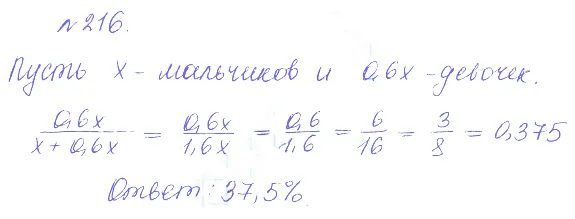 №216.
Пусть x - мальчиков и 0,6x - девочек.
0,6x / x + 0,6x = 0,6x / 1,6x = 0,6 / 1,6 = 6 / 16 = 3 / 8 = 0,375
Ответ: 37,5%